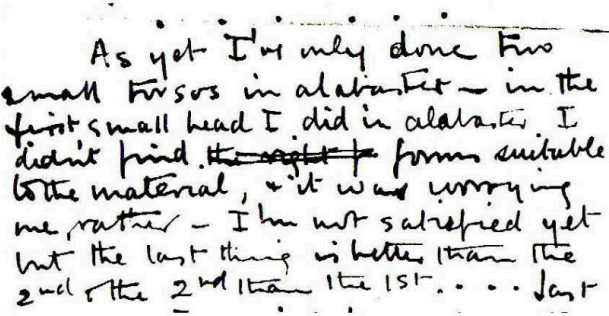 As yet I've only done two
small torsos in alabaster – in the
first small head I did in alabaster I
didn't find the right f forms suitable
to the material, & it was worrying
me, rather – I'm not satisfied yet
but the last thing is better than the
2nd & the 2nd than the 1st..... last